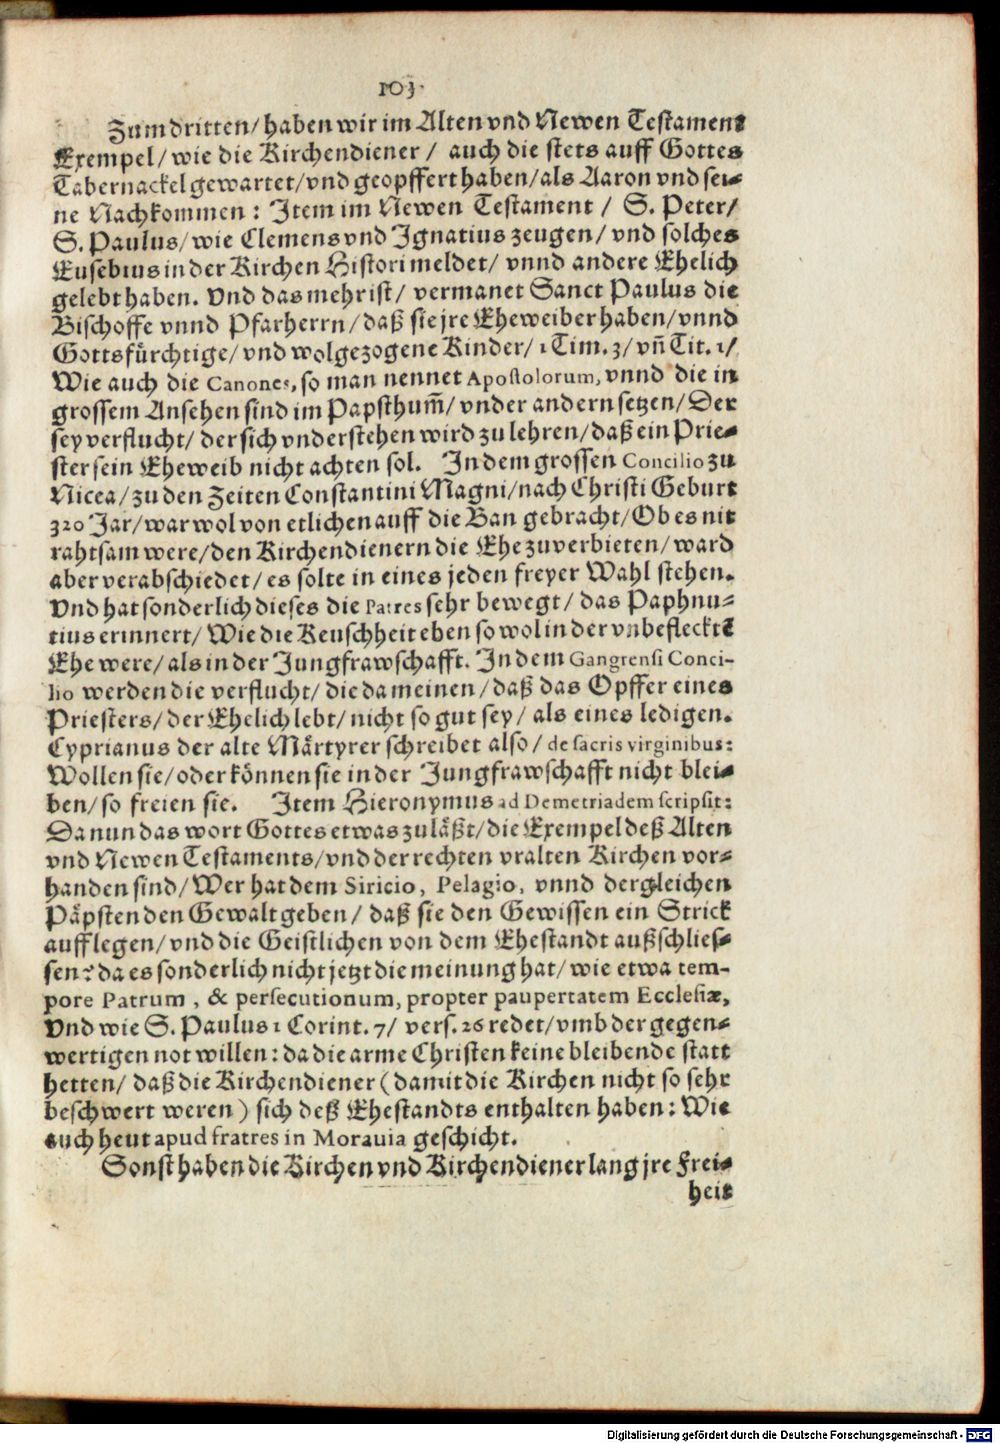 103.
Zum dritten/ haben wir im Alten vnd Newen Testament
Exempel/ wie die Kirchendiener/ auch die stets auff Gottes
Tabernackel gewartet/ vnd geopffert haben/ als Aaron vnd sei-
ne Nachkommen: Item im Newen Testament/ S. Peter/
S. Paulus/ wie Clemens vnd Ignatius zeugen/ vnd solches
Eusebius in der Kirchen Histori meldet/ vnnd andere Ehelich
gelebt haben. Vnd das mehr ist/ vermanet Sanct Paulus die
Bischoffe vnnd Pfarherrn/ daß sie jre Eheweiber haben/ vnnd
Gottsfürchtige/ vnd wolgezogene Kinder/ 1 Tim. 3/ vñ Tit. 1/
Wie auch die Canones, so man nennet Apostolorum, vnnd die in
grossem Ansehen sind im Papsthum̃/ vnder andern setzen/ Der
sey verflucht/ der sich vnderstehen wird zu lehren/ daß ein Prie-
ster sein Eheweib nicht achten sol. In dem grossen Concilio zu
Nicea/ zu den Zeiten Constantini Magni/ nach Christi Geburt
320 Jar/ war wol von etlichen auff die Ban gebracht/ Ob es nit
rahtsam were/ den Kirchendienern die Ehe zuverbieten/ ward
aber verabschiedet/ es solte in eines jeden freyer Wahl stehen.
Vnd hat sonderlich dieses die Patres sehr bewegt/ das Paphnu-
tius erinnert/ Wie die Keuschheit eben so wol in der vnbeflecktẽ
Ehe were/ als in der Jungfrawschafft. In dem Gangrensi Conci-
lio werden die verflucht/ die da meinen/ daß das Opffer eines
Priesters/ der Ehelich lebt/ nicht so gut sey/ als eines ledigen.
Cyprianus der alte Märtyrer schreibet also/ de sacris virginibus:
Wollen sie/ oder können sie in der Jungfrawschafft nicht blei-
ben/ so freien sie. Item Hieronymus ad Demetriadem scripsit:
Da nun das wort Gottes etwas zuläßt/ die Exempel deß Alten
vnd Newen Testaments/ vnd der rechten vralten Kirchen vor-
handen sind/ Wer hat dem Siricio, Pelagio, vnnd dergleichen
Päpsten den Gewalt geben/ daß sie den Gewissen ein Strick
aufflegen/ vnd die Geistlichen von dem Ehestandt außschlies-
sen? da es sonderlich nicht jetzt die meinung hat/ wie etwa tem-
pore Patrum, & persecutionum, propter paupertatem Ecclesiæ,
Vnd wie S. Paulus 1 Corint. 7/ vers. 26 redet/ vmb der gegen-
wertigen not willen: da die arme Christen keine bleibende statt
hetten/ daß die Kirchendiener (damit die Kirchen nicht so sehr
beschwert weren) sich deß Ehestandts enthalten haben: Wie
auch heut apud fratres in Moravia geschicht.
Sonst haben die Kirchen vnd Kirchendiener lang jre Frei-
heit
Digitalisierung gefördert durch die Deutsche Forschungsgemeinschaft - DFG